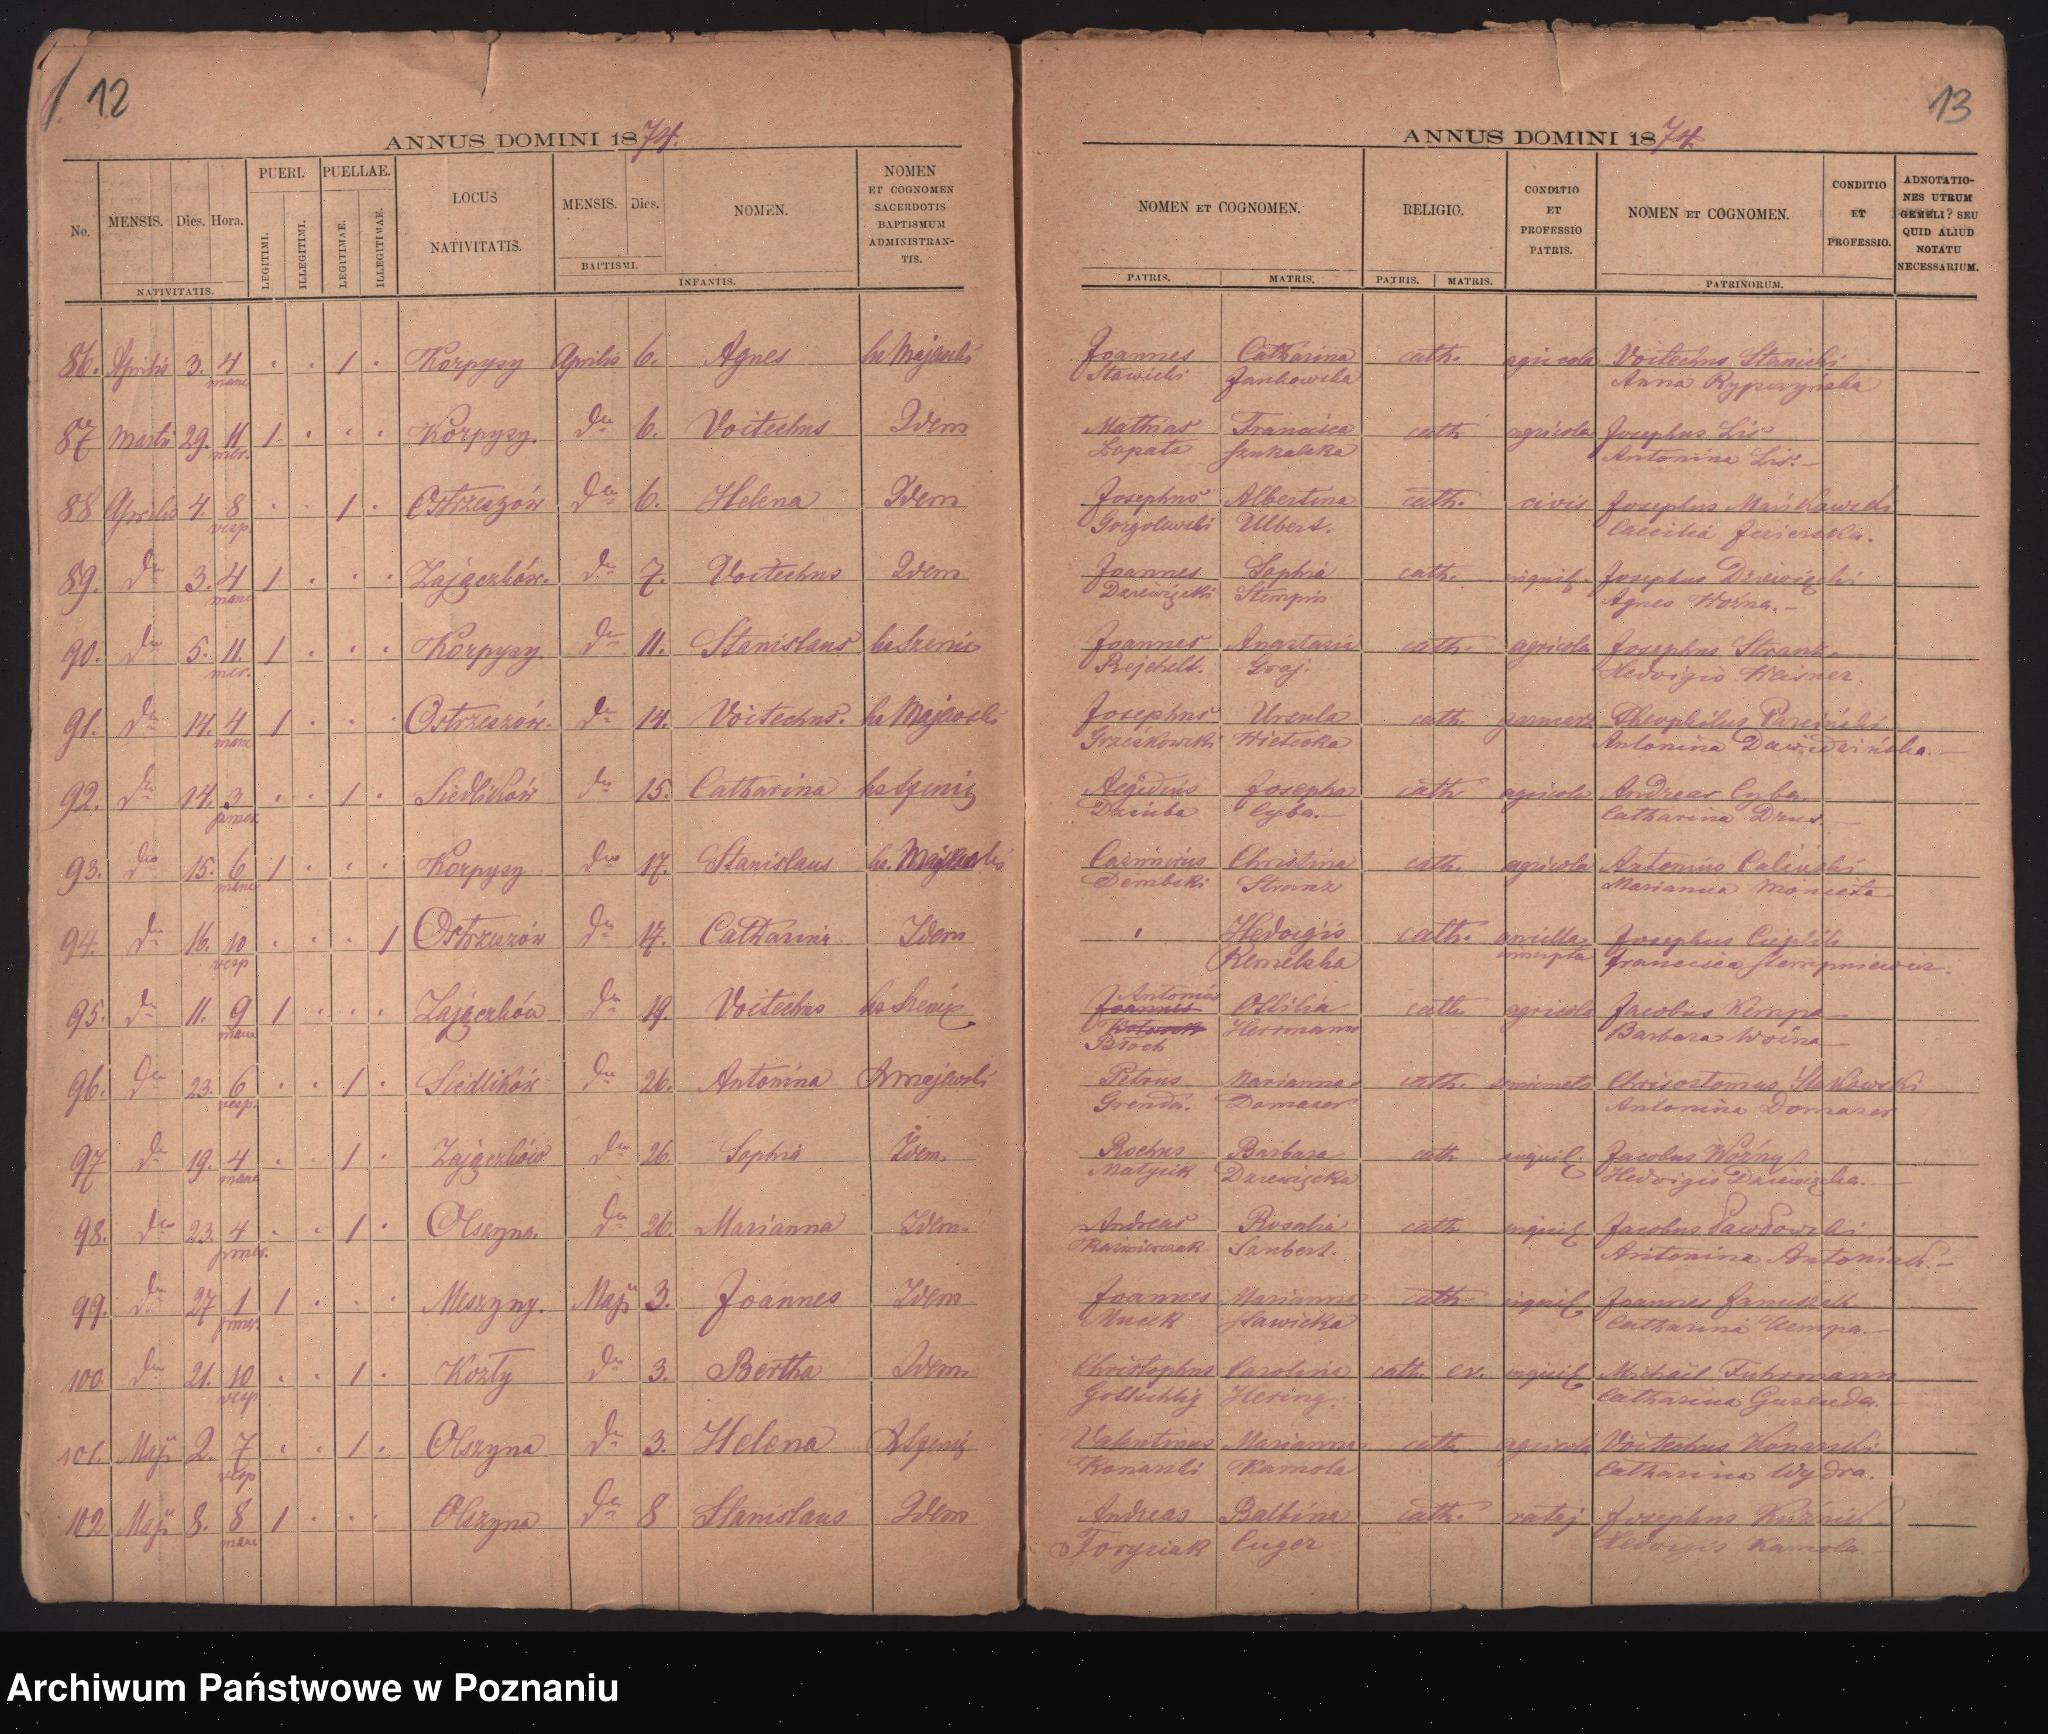 12
ANNUS DOMINI 1874.
No. MENSIS. Dies. Hora. NATIVITATIS.
PUERI. LEGITIMI. ILLEGITIMI.
PUELLAE. LEGITIMAE. ILLEGITIMAE.
LOCUS NATIVITATIS.
MENSIS. Dies. BAPTISMI.
NOMEN. INFANTIS.
NOMEN ET COGNOMEN SACERDOTIS BAPTISMUM ADMINISTRANTIS.
86. Aprilis 3. 4 mane 1 Korpysy Aprilis 6. Agnes Majewski
87 Martii 29. 11 1 Korpysy. dto 6. Voitechus Idem
88 Aprilis 4. 8 vesp. 1 Ostrzeszów dto 6. Helena Idem
89. dto 3. 4 mane 1 Zajączków. dto 7. Voitechus Idem
90. dto 5. 11. mer. 1 Korpysy dto 11. Stanislaus
91. dto 14. 4 mane 1 Ostrzeszów. dto 14. Voitechus. Majewski
92. dto 14. 3 pmer. 1 Siedlików dto 15. Catharina
93. dto 15. 6 mane 1 Korpysy dto 17. Stanislaus Majewski
94. dto 16. 10 vesp 1 Ostrzeszów dto 17. Catharina Idem
95. dto 11. 9 mane 1 Zajączków dto 19. Voitechus
96. dto 23. 6 vesp. 1 Siedlików dto 26. Antonina Majewski
97 dto 19. 4 mane 1 Zajączków dto 26. Sophia Idem
98. dto 23. 4 pmer. 1 Olszyna. dto 26. Marianna Idem.
99. dto 27 1 pmer. 1 Meszyny. Maji 3. Joannes Idem
100. dto 21. 10 vesp 1 Kozły dto 3. Bertha Idem
101. Maji 2. 7 vesp 1 Olszyna dto 3. Helena
102 Maji 8. 8 mane 1 Olszyna dto 8 Stanislaus Idem
13
ANNUS DOMINI 1874.
NOMEN ET COGNOMEN. PATRIS. MATRIS.
RELIGIO. PATRIS. MATRIS.
CONDITIO ET PROFESSIO PATRIS.
NOMEN ET COGNOMEN. PATRINORUM.
CONDITIO ET PROFESSIO.
ADNOTATIONES UTRUM GEMELI? SEU QUID ALIUD NOTATU NECESSARIUM.
Joannes Catharina cath. agricola Voitechus Stawicki
Stawicki Jankowska Anna
Mathias Francisca cath agricola Josephus Lis
Łopata Szukalska Antonina Lis.
Josephus Albertina cath. civis Josephus Mańkowski
Gorgolewski Ulbert.
Joannes Sophia cath. inquil. Josephus Dziewięcki
Dziewięcki Stempin Agnes Woźna.
Joannes Anastasia cath. agricola Josephus Stranz
Rejchelt. Graj. Hedvigis Weisner.
Josephus Ursula cath. Theophilus
Grześkowski Wietecka Antonina Dawidzińska.
Aegidius Josepha cath agricola Andreas Cyba.
Dziuba Cyba. Catharina
Casimirus Christina cath. agricola Antonius Caliński
Dembski Stranz Marianna
Hedvigis cath. ancilla Josephus
Kemelska innupta Francisca Stempniewicz.
Antonius Ottilia cath. agricola Jacobus Kempa
Joannes Herrmann Barbara Woźna
Błoch
Petrus Marianna cath. Chrisostomus
Grenda. Domaser Antonina Domaser
Rochus Barbara cath inquil. Jacobus Woźny
Matysik Dziewięcka Hedvigis Dziewięcka.
Andreas Rosalia cath inquil Jacobus Pawłowski
Kaźmierczak Saubert. Antonina Antoniak.
Joannes Marianna cath. inquil Joannes Januszek
Stawicka Catharina Kempa.
Christophus Carolina cath. ev. inquil Michael Fuhrmann
Gottschlig Hering. Catharina
Valentinus Marianna cath agricola Voitechus Konarski
Konarski Kamola Catharina Wydra.
Andreas Balbina cath. rataj Josephus Kuźnik
Forysiak Cuger Hedvigis Kamola.
Archiwum Państwowe w Poznaniu